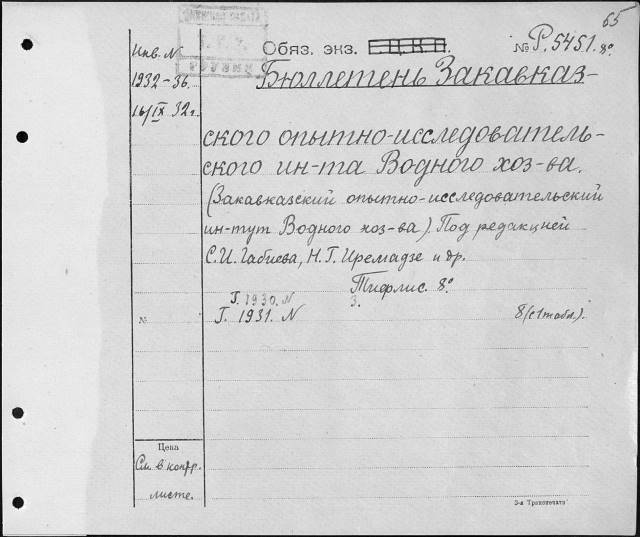 65
Инв. N
1932-36.
16/IX 32г.
Обяз. экз. Е.Ц.К.П.
№ Р.5451.8°
Бюллетень Закавказ-
ского опытно-исследователь-
ского ин-та Водного хоз-ва.
(Закавказский опытно-исследовательский
ин-тут Водного хоз-ва). Под редакцией
С.И. Габиева, Н.Г. Иремадзе и др.
Тифлис. 8°.
Г. 1930. N 3.
№ Г. 1931. N 8 (с 1 табл.).
Цена
См. в контр.
листе.
3-я Транспечати